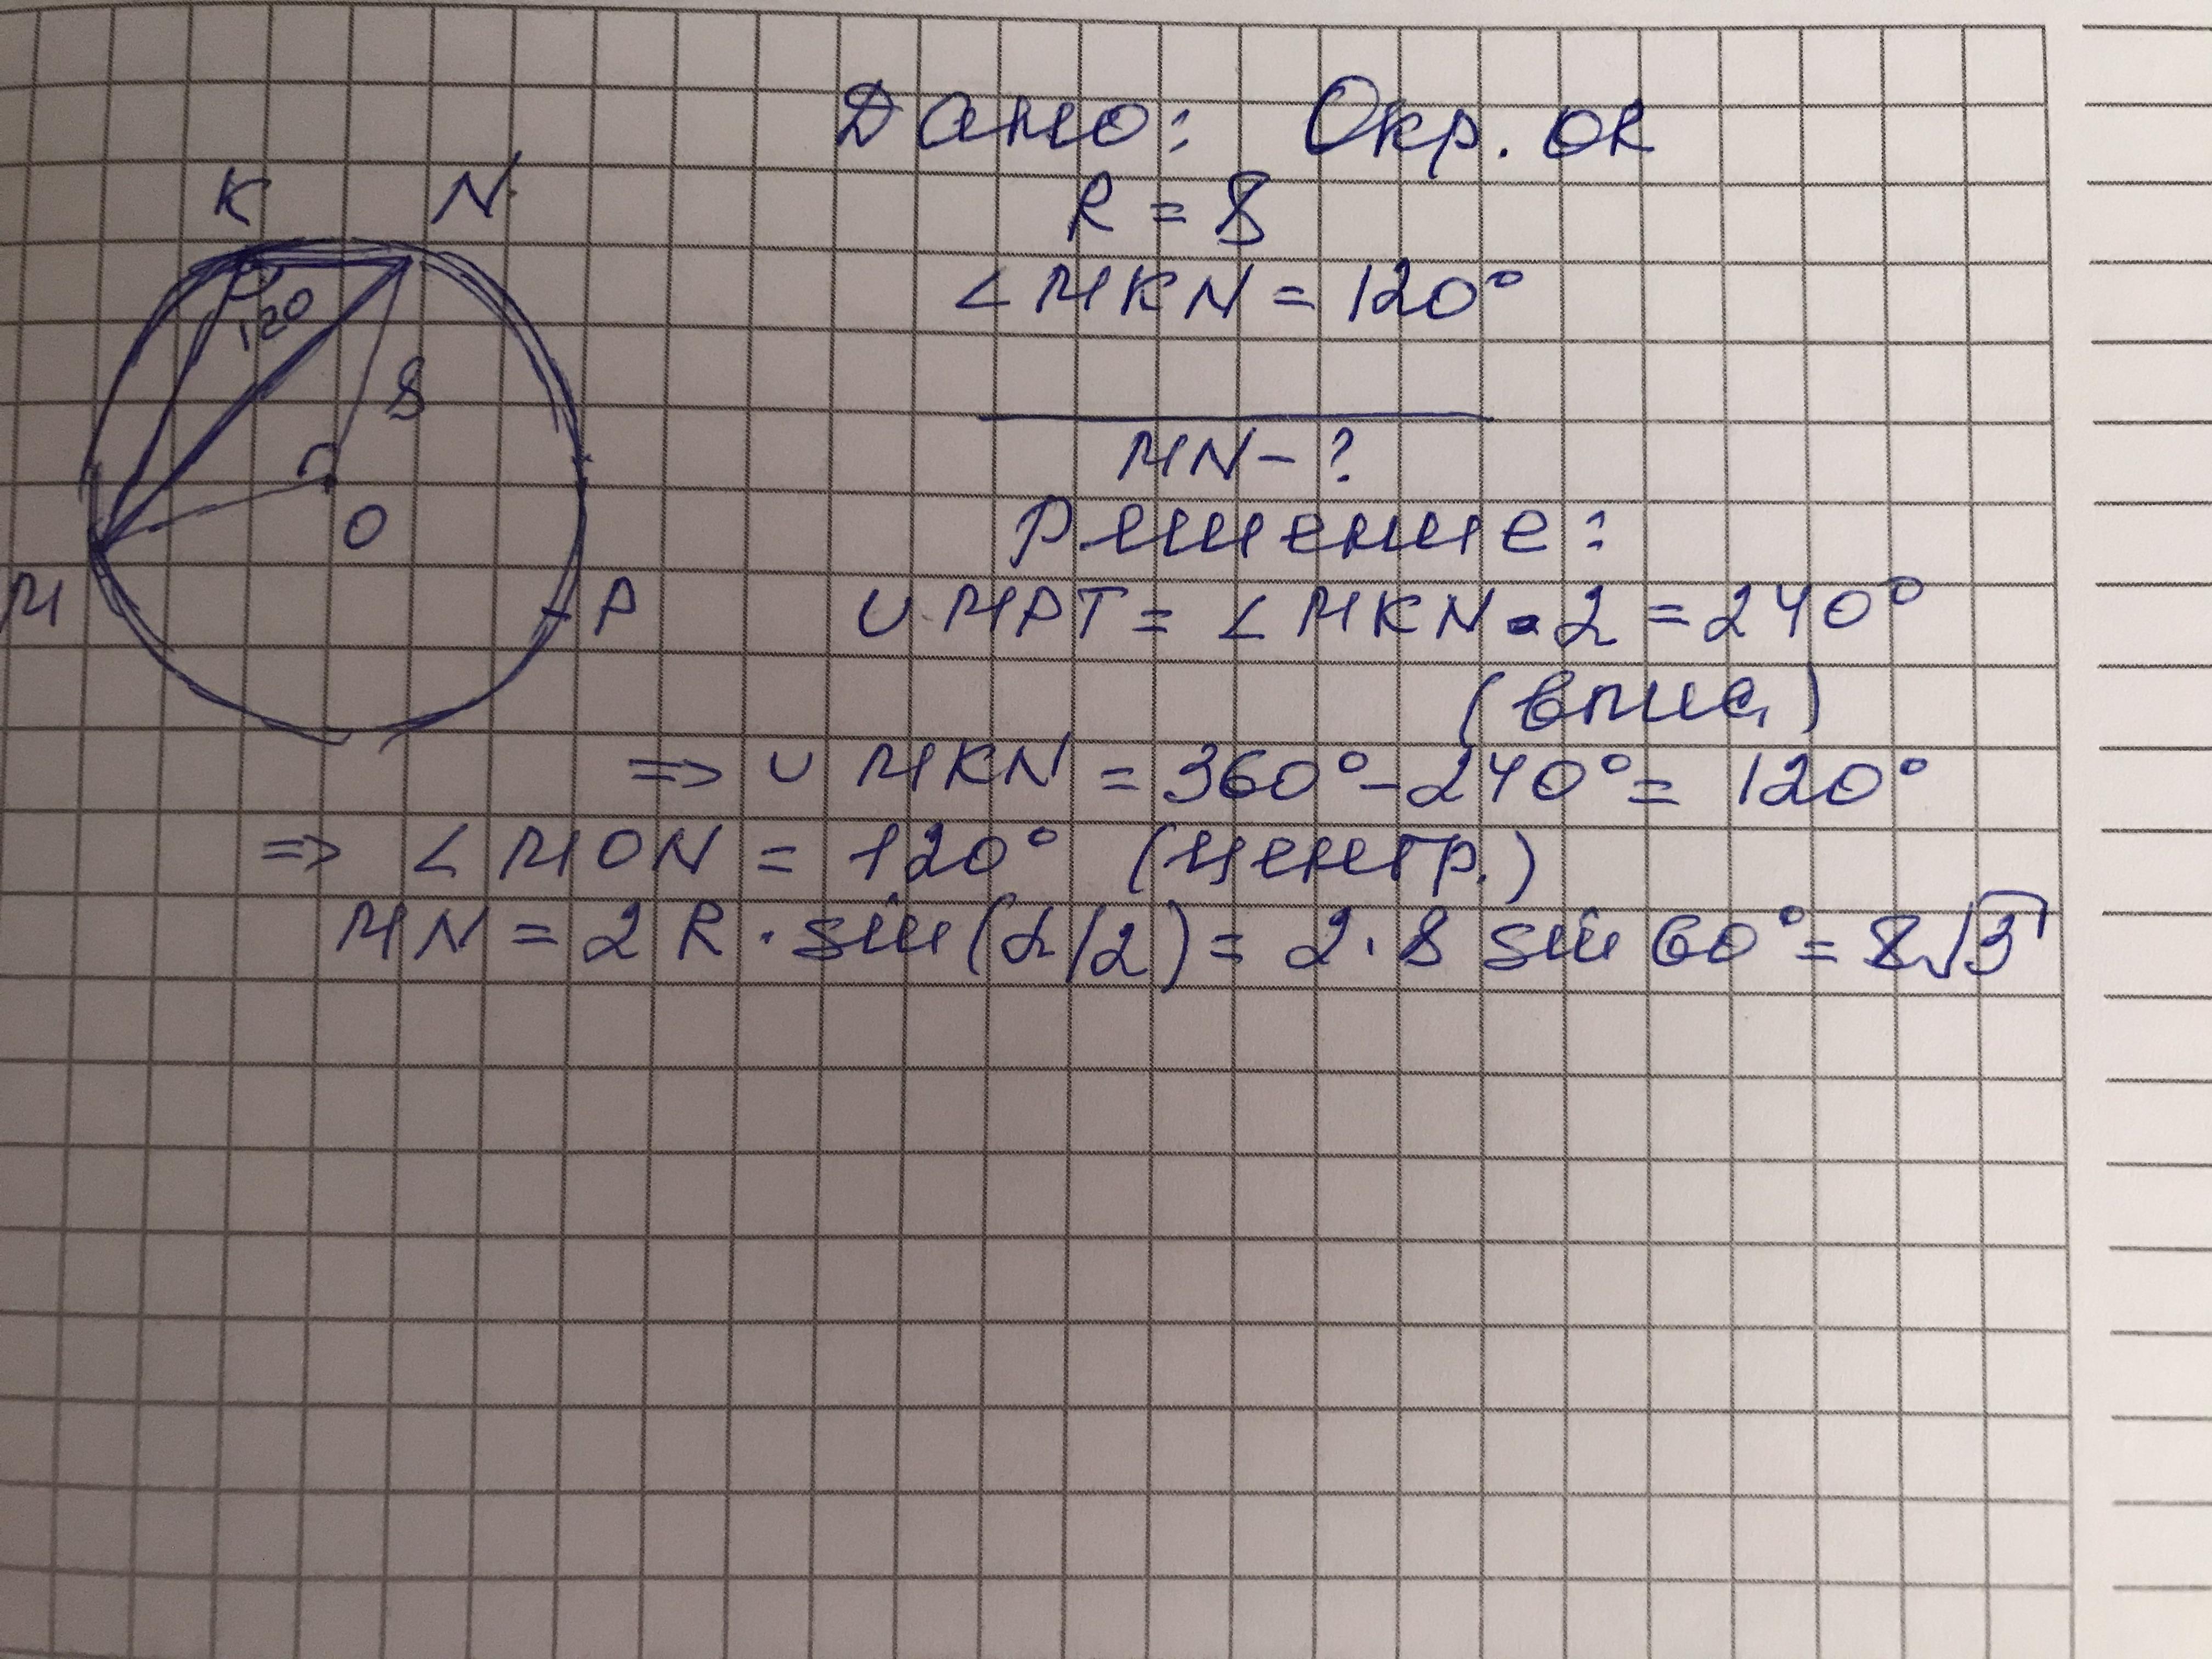 Дано: Окр. OR
R = 8
∠MKN = 120°
MN - ?
Решение:
K N
120
8
O
M
P
∪ MPT = ∠MKN · 2 = 240°
(впис.)
=> ∪ MKN = 360° - 240° = 120°
=> ∠MON = 120° (центр.)
MN = 2R · sin(α/2) = 2 · 8 sin 60° = 8√3